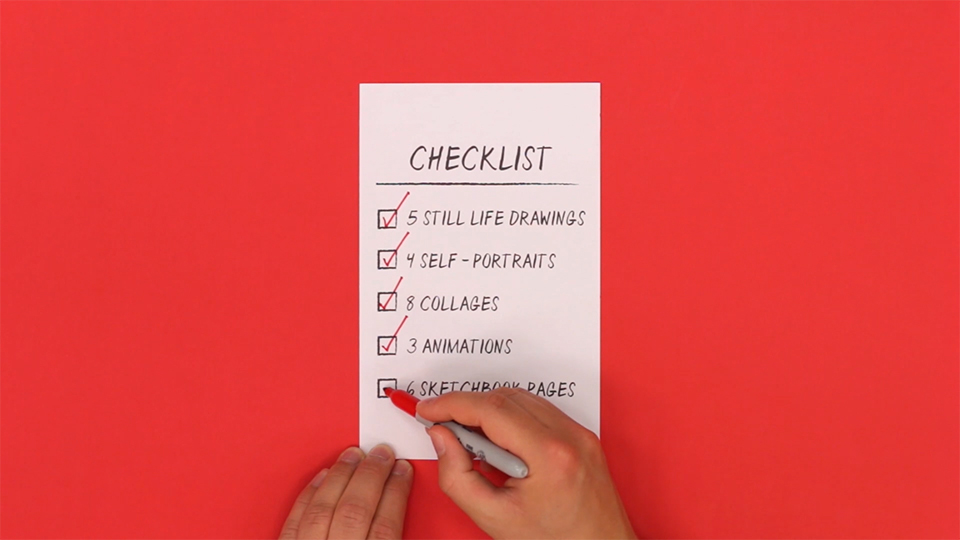 CHECKLIST
5 STILL LIFE DRAWINGS
4 SELF-PORTRAITS
8 COLLAGES
3 ANIMATIONS
6 SKETCHBOOK PAGES